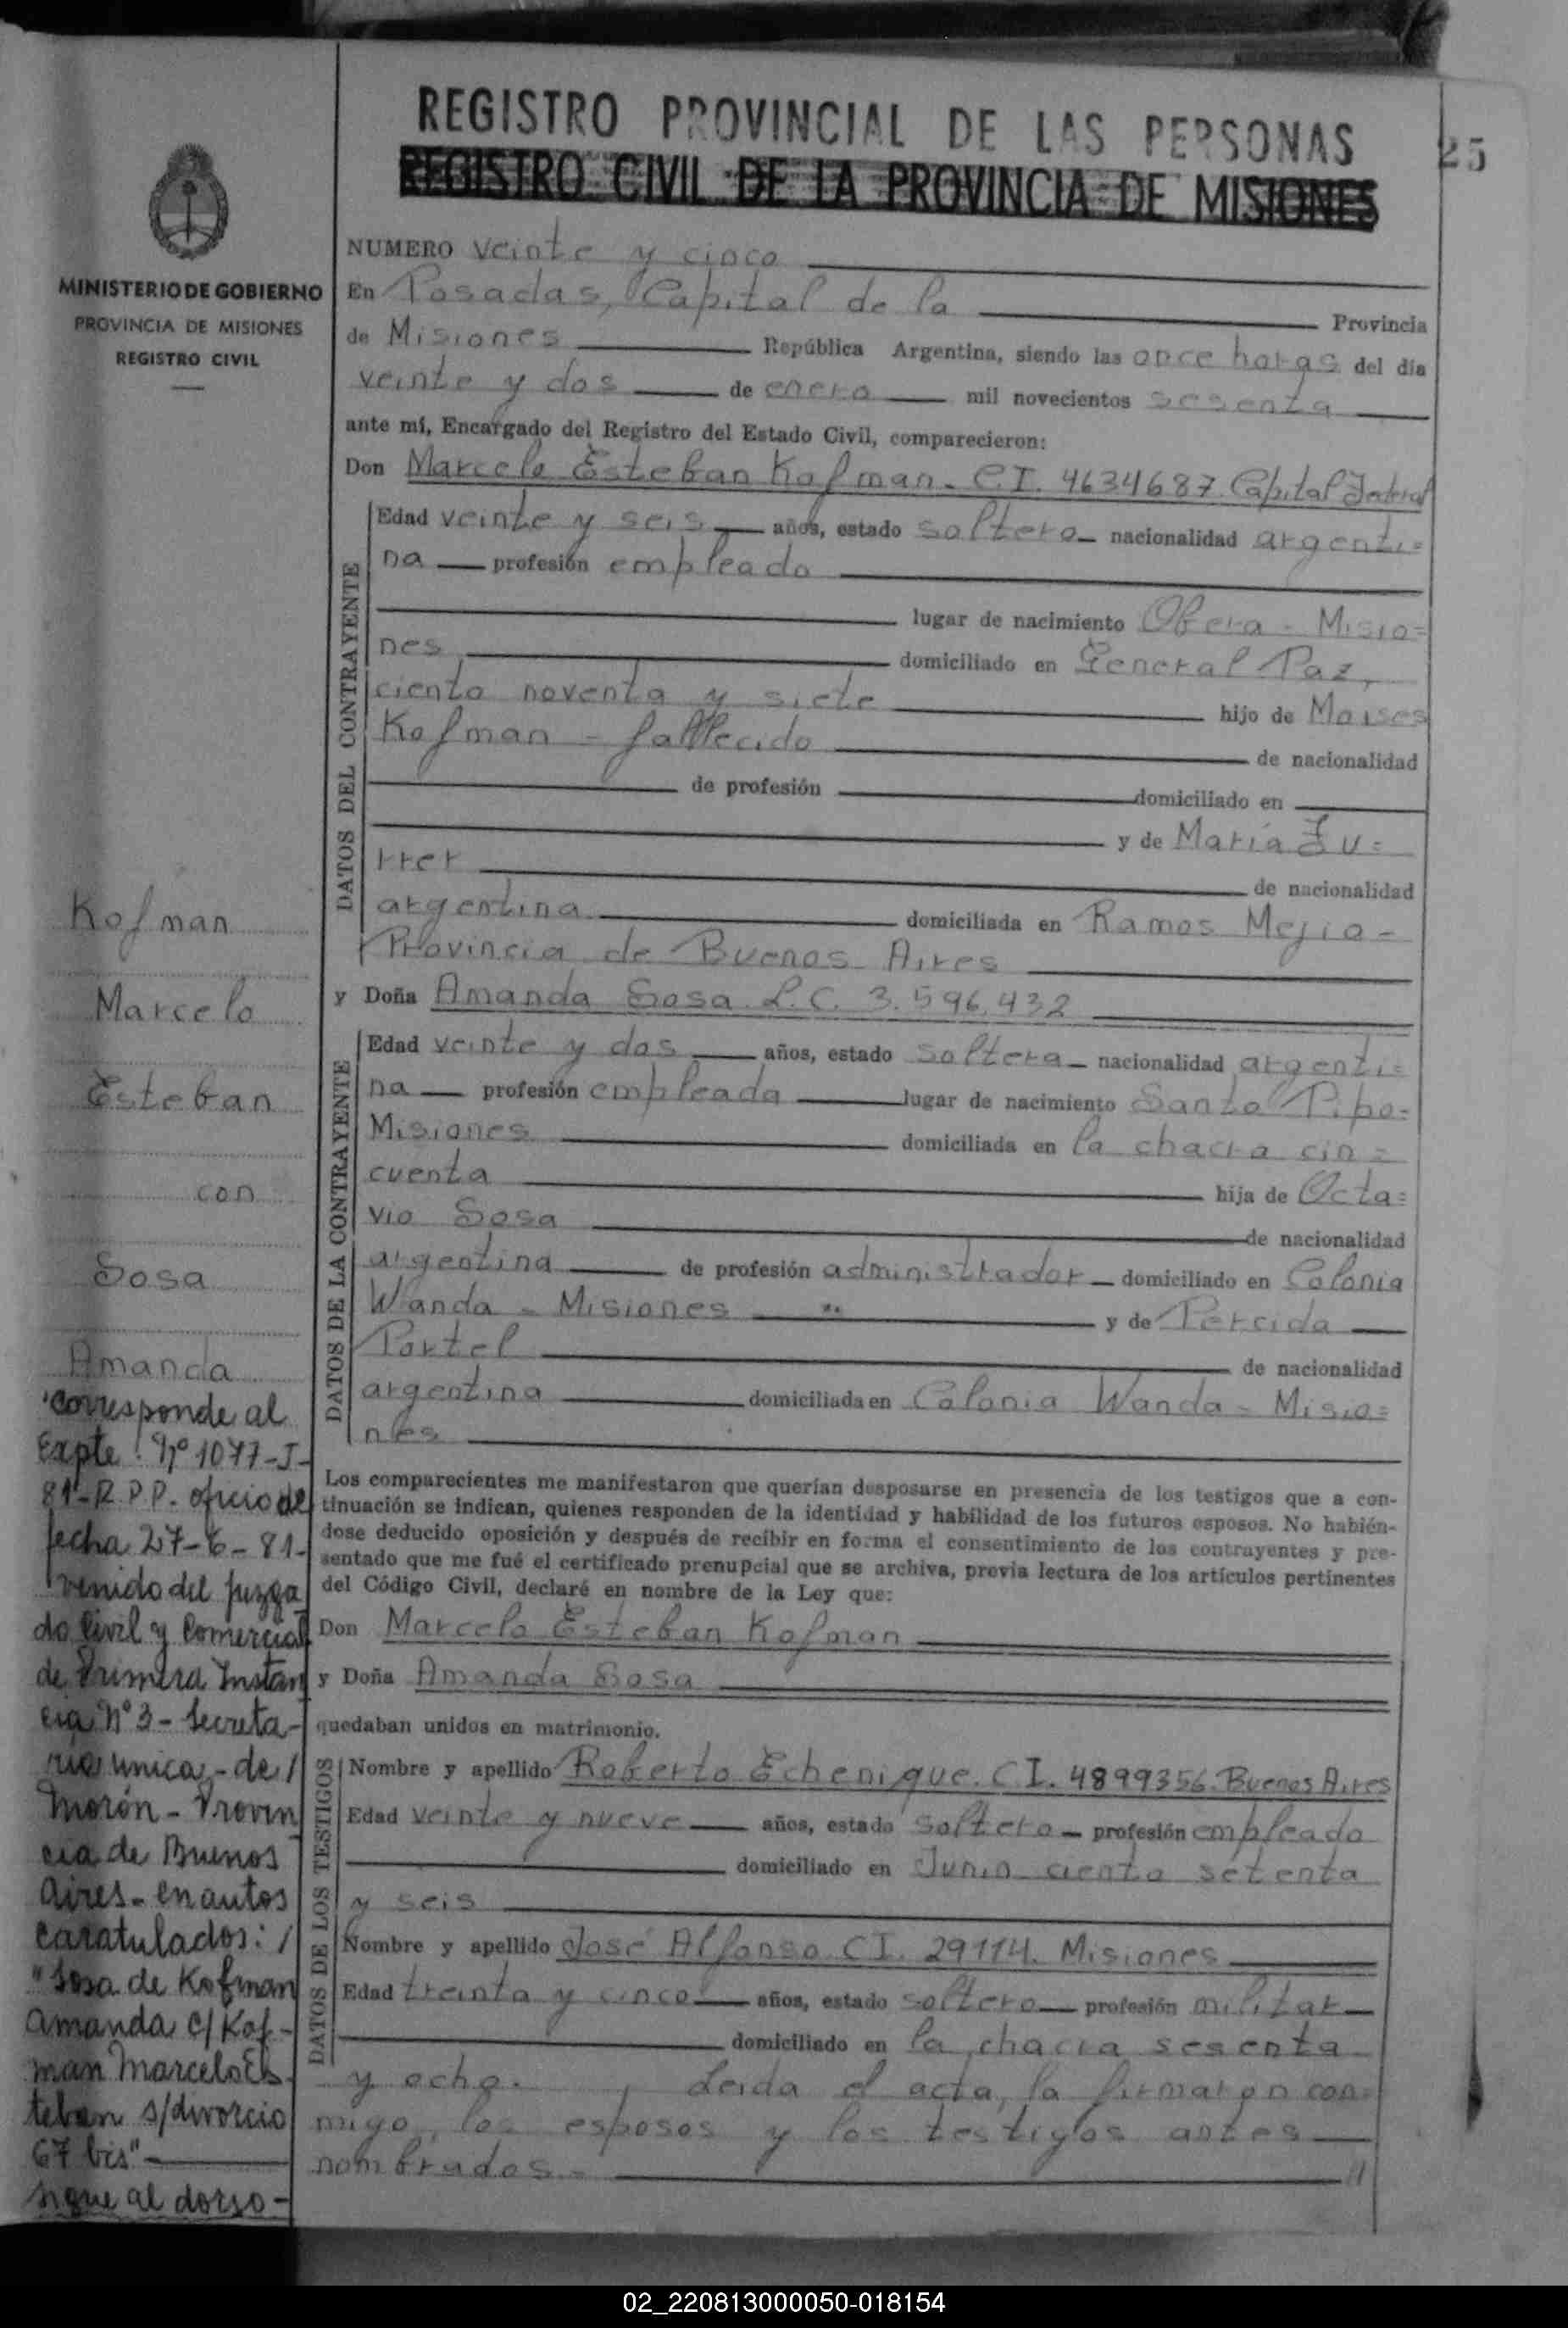 REGISTRO PROVINCIAL DE LAS PERSONAS
25
REGISTRO CIVIL DE LA PROVINCIA DE MISIONES
MINISTERIO DE GOBIERNO
PROVINCIA DE MISIONES
REGISTRO CIVIL
NUMERO veinte y cinco
En Posadas, Capital de la Provincia
de Misiones República Argentina, siendo las once horas del día
veinte y dos de enero mil novecientos sesenta
ante mí, Encargado del Registro del Estado Civil, comparecieron:
Don Marcelo Esteban Kofman. C.I. 4634687. Capital Federal
DATOS DEL CONTRAYENTE
Edad veinte y seis años, estado soltero nacionalidad argenti=
na profesión empleado
lugar de nacimiento Obera - Misio=
nes domiciliado en General Paz,
ciento noventa y siete hijo de Moises
Kofman - fallecido de nacionalidad
de profesión domiciliado en
y de María Fu=
rrer de nacionalidad
argentina domiciliada en Ramos Mejia -
Provincia de Buenos Aires
y Doña Amanda Sosa L.C. 3.596.432
DATOS DE LA CONTRAYENTE
Edad veinte y dos años, estado soltera nacionalidad argenti=
na profesión empleada lugar de nacimiento Santo Pipo-
Misiones domiciliada en la chacra cin=
cuenta hija de Octa=
vio Sosa de nacionalidad
argentina de profesión administrador domiciliado en Colonia
Wanda - Misiones y de Percida
Portel de nacionalidad
argentina domiciliada en Colonia Wanda - Misio=
nes
Los comparecientes me manifestaron que querían desposarse en presencia de los testigos que a con-
tinuación se indican, quienes responden de la identidad y habilidad de los futuros esposos. No habién-
dose deducido oposición y después de recibir en forma el consentimiento de los contrayentes y pre-
sentado que me fué el certificado prenupcial que se archiva, previa lectura de los artículos pertinentes
del Código Civil, declaré en nombre de la Ley que:
Don Marcelo Esteban Kofman
y Doña Amanda Sosa
quedaban unidos en matrimonio.
DATOS DE LOS TESTIGOS
Nombre y apellido Roberto Echenique. C.I. 4899356. Buenos Aires
Edad veinte y nueve años, estado soltero profesión empleado
domiciliado en Junin ciento setenta
y seis
Nombre y apellido José Alfonso C.I. 29114. Misiones
Edad treinta y cinco años, estado soltero profesión militar
domiciliado en la chacra sesenta
y ocho. Leida el acta, la firmaron con=
migo, los esposos y los testigos antes
nombrados.- //
Kofman
Marcelo
Esteban
con
Sosa
Amanda
Corresponde al
Expte. Nº 1077-J-
81-R.P.P. oficio de
fecha 27-6-81-
venido del juzga
do Civil y Comercial
de Primera Instan
cia Nº 3 - Secreta-
ria unica - de /
Morón - Provin
cia de Buenos
Aires - en autos
caratulados: /
"Sosa de Kofman
Amanda c/ Kof-
man Marcelo Es-
teban s/divorcio
67 bis"
sigue al dorso -
02_220813000050-018154